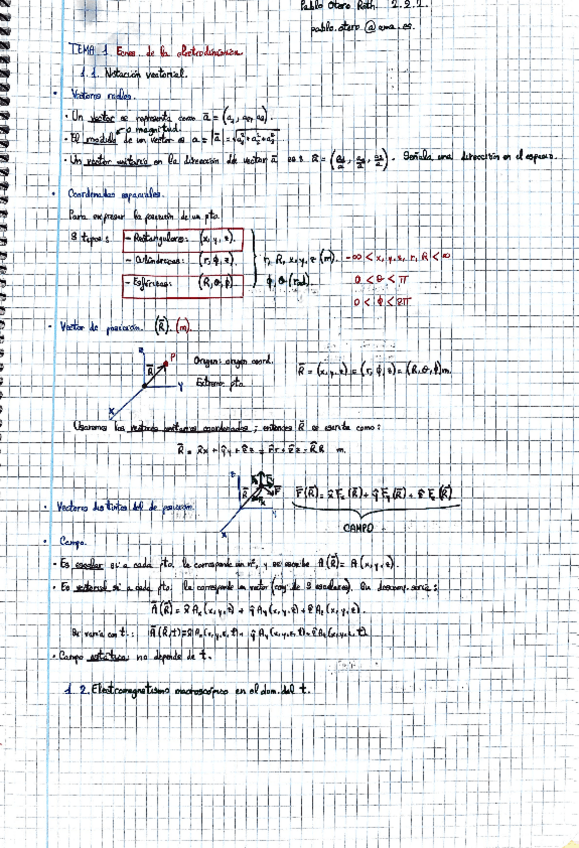 Pablo Otero Roth. 2.2.2.
pablo.otero@uma.es.
TEMA 1. Ecnes. de la electrodinámica
1.1. Notación vectorial.
· Vectores reales.
· Un vector se representa como ā = (a₁, a₂, a₃).
o magnitud.
· El módulo de un vector es a = |ā| = √(a₁² + a₂² + a₃²)
· Un vector unitario en la dirección del vector ā es: â = (a₁/a, a₂/a, a₃/a). Señala una dirección en el espacio.
· Coordenadas espaciales.
Para expresar la posición de un pto.
3 tipos:
- Rectangulares: (x, y, z).
- Cilíndricas: (r, ϕ, z).
- Esféricas: (R, θ, ϕ)
r, R, x, y, z (m). -∞ < x, y, z, r, R < ∞
ϕ, θ (rad). 0 < θ < π
0 < ϕ < 2π
· Vector de posición. (R̄). (m).
z P
R̄ Y
X
Origen: origen coord.
Extremo: pto.
R̄ = (x, y, z) = (r, ϕ, z) = (R, θ, ϕ) m.
Usaremos los vectores unitarios coordenados; entonces R̄ se escribe como:
R̄ = x̂x + ŷy + ẑz = r̂r + ẑz = R̂R m.
· Vectores distintos del de posición.
F̄(R̄) = x̂ Fₓ(R̄) + ŷ F_y(R̄) + ẑ F_z(R̄)
CAMPO
· Campo.
· Es escalar si a cada pto. le corresponde un nº, y se escribe A(R̄) = A(x, y, z).
· Es vectorial si a cada pto. le corresponde un vector (conj. de 3 escalares). Su descomp. sería:
Ā(R̄) = x̂ Aₓ(x, y, z) + ŷ A_y(x, y, z) + ẑ A_z(x, y, z).
Si varía con t.: Ā(R̄,t) = x̂ Aₓ(x, y, z, t) + ŷ A_y(x, y, z, t) + ẑ A_z(x, y, z, t)
· Campo estático: no depende de t.
1.2. Electromagnetismo macroscópico en el dom. del t.